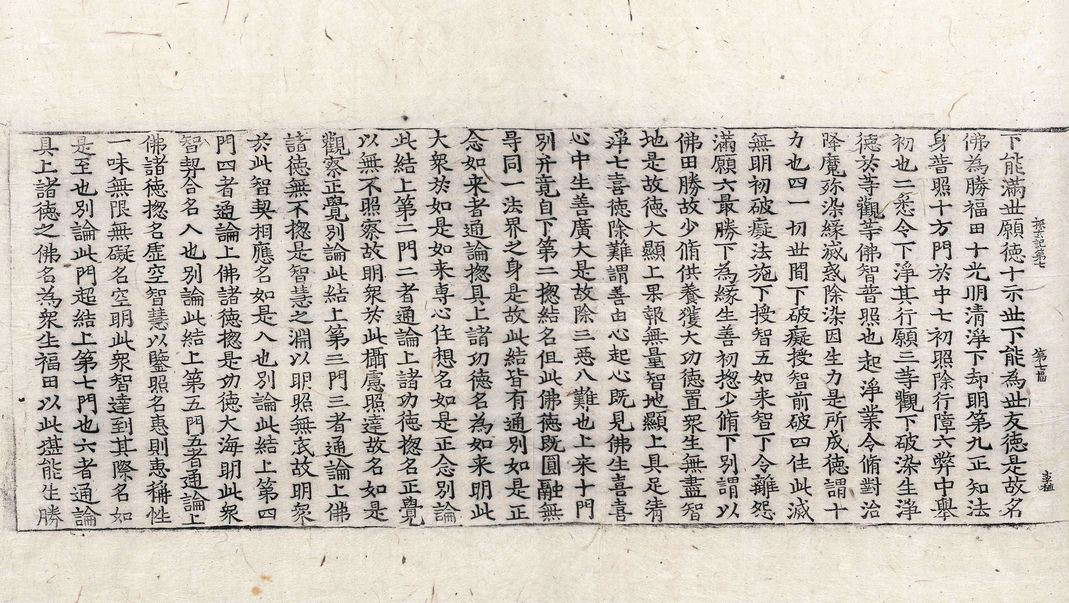 下能滿世願德十示世下能為世友德是故名
佛為勝福田十光明清淨下却明第九正知法
身普照十方門於中七初照除行障六弊中舉
初也二悉令下淨其行願三等觀下破染生淨
德於等觀等佛智普照也起淨業令脩對治
降魔弥染緣滅惑除染因生力是所成德謂十
力也四一切世間下破癡授智前破四住此滅
無明初破癡法施下授智五如来智下令離怨
滿願六最勝下為緣生善初揔少脩下別謂以
佛田勝故少脩供養獲大功德置衆生無盡智
地是故德大顯上果報無量智地顯上具足清
淨七喜德除難謂善由心起心既見佛生喜喜
心中生善廣大是故除三悪八難也上来十門
別弁竟自下第二揔結名但此佛德既圓融無
导同一法界之身是故此結皆有通別如是正
念如来者通論揔具上諸功德名為如来明此
大衆於如是如来専心住想名如是正念別論
此結上第二門二者通論上諸功德揔名正覺
以無不照察故明衆於此攝慮照達故名如是
觀察正覺別論此結上第三門三者通論上佛
諸德無不揔是智慧之淵以明照無底故明衆
於此智契相應名如是入也別論此結上第四
門四者通論上佛諸德揔是功德大海明此衆
智契合名入也別論此結上第五門五者通論上
佛諸德揔名虛空智慧以鑒照名惠則惠稱性
一味無限無礙名空明此衆智達到其際名如
是至也別論此門起結上第七門也六者通論
具上諸德之佛名為衆生福田以此堪能生勝
探玄記第七
第七幅